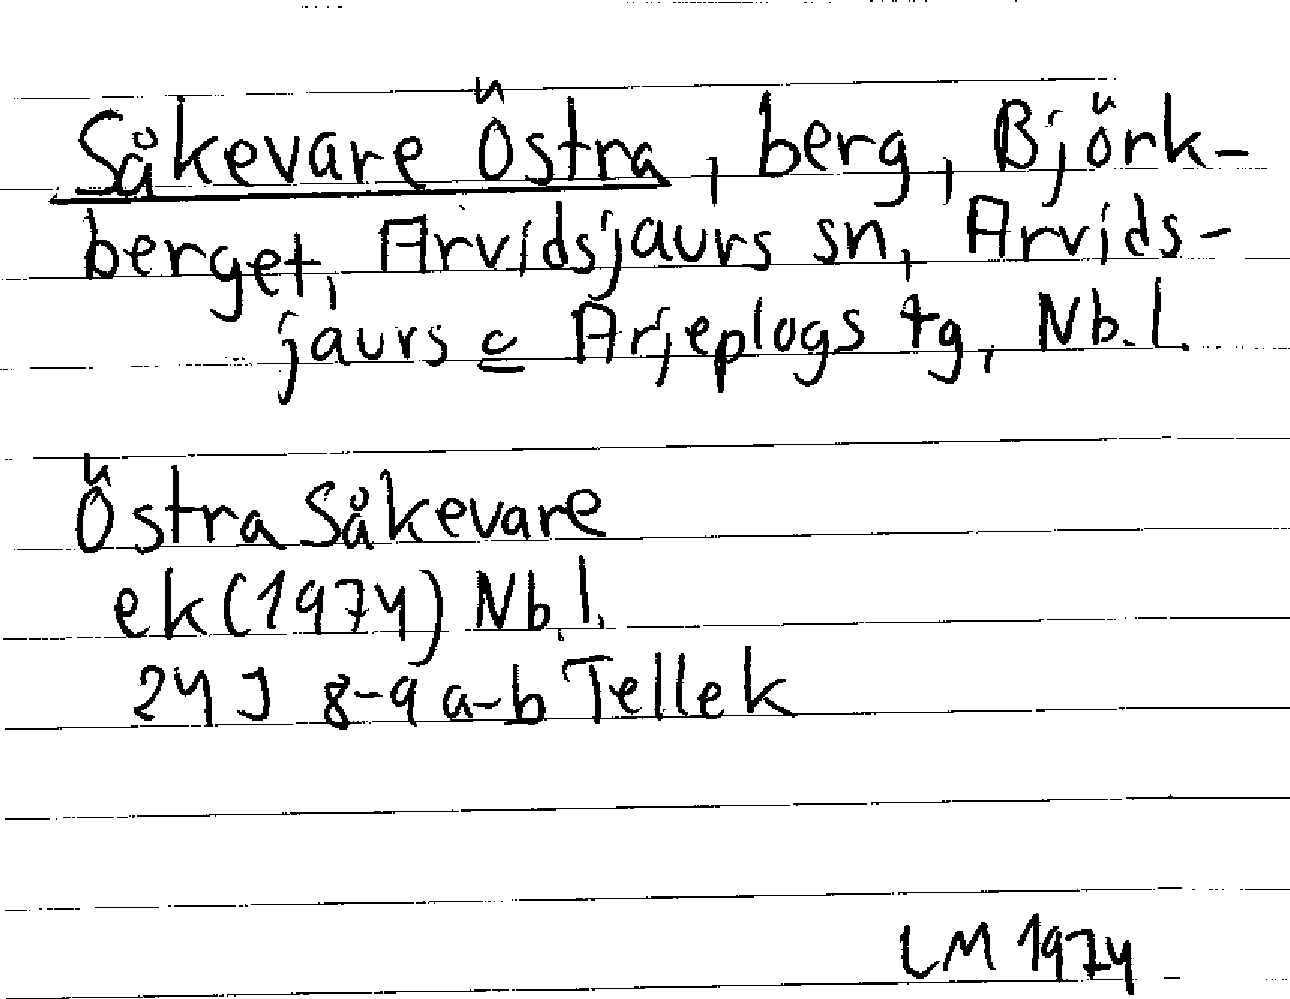 Såkevare Östra, berg, Björk-
berget, Arvidsjaurs sn, Arvids-
jaurs c Arjeplogs tg, Nb.l.
Östra Såkevare
ek (1974) Nb.l.
24 J 8-9 a-b Tellek
LM 1974